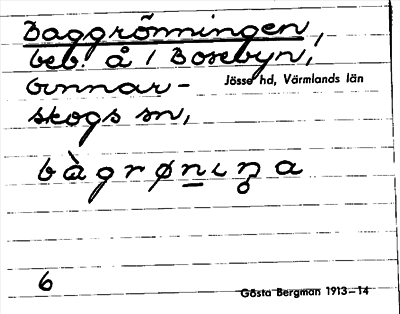 Daggrönningen,
beb. å 1 Bosebyn,
Gunnar-
skogs sn,
Jösse hd, Värmlands län
bàgrønıŋ̥a
6
Gösta Bergman 1913–14